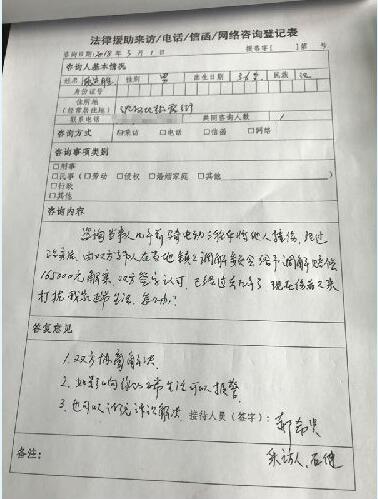 法律援助来访/电话/信函/网络咨询登记表
咨询日期2018年5月1日 援咨字[ ]第 号
咨询人基本情况
姓名 性别 男 出生日期 民族 汉
身份证号
住所地
(经常居住地)
联系电话 共同咨询人数 1
咨询方式 ☑来访 □电话 □信函 □网络
咨询事项类别
□刑事
□民事(□劳动 □侵权 □婚姻家庭 □其他
□行政
□其他
咨询内容
咨询当事人几年前骑电动三轮车将他人撞伤,经过
治疗后,由双方当事人在当地镇上调解委员会给予调解赔偿
165000元解案,双方签字认可,已经过去几年了,现在伤者又来
打扰我家正常生活,怎么办?
答复意见
1.双方协商解决
2.如果影响你的正常生活可以报警
3.也可以诉讼法院解决
接待人员(签字):
备注: 来访人